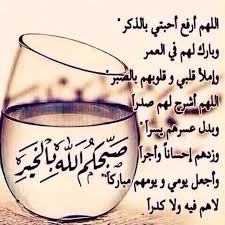 اللهم أرفع أحبتي بالذكر"
وبارك لهم في العمر
وإملأ قلبي و قلوبهم بالصبر"
اللهم أشرح لهم صدراً
وبدل عسرهم يسراً"
وزدهم إحساناً وأجراً
وأجعل يومي و يومهم مباركاً"
لاهم فيه ولا كدراً
صبحكم الله بالخير